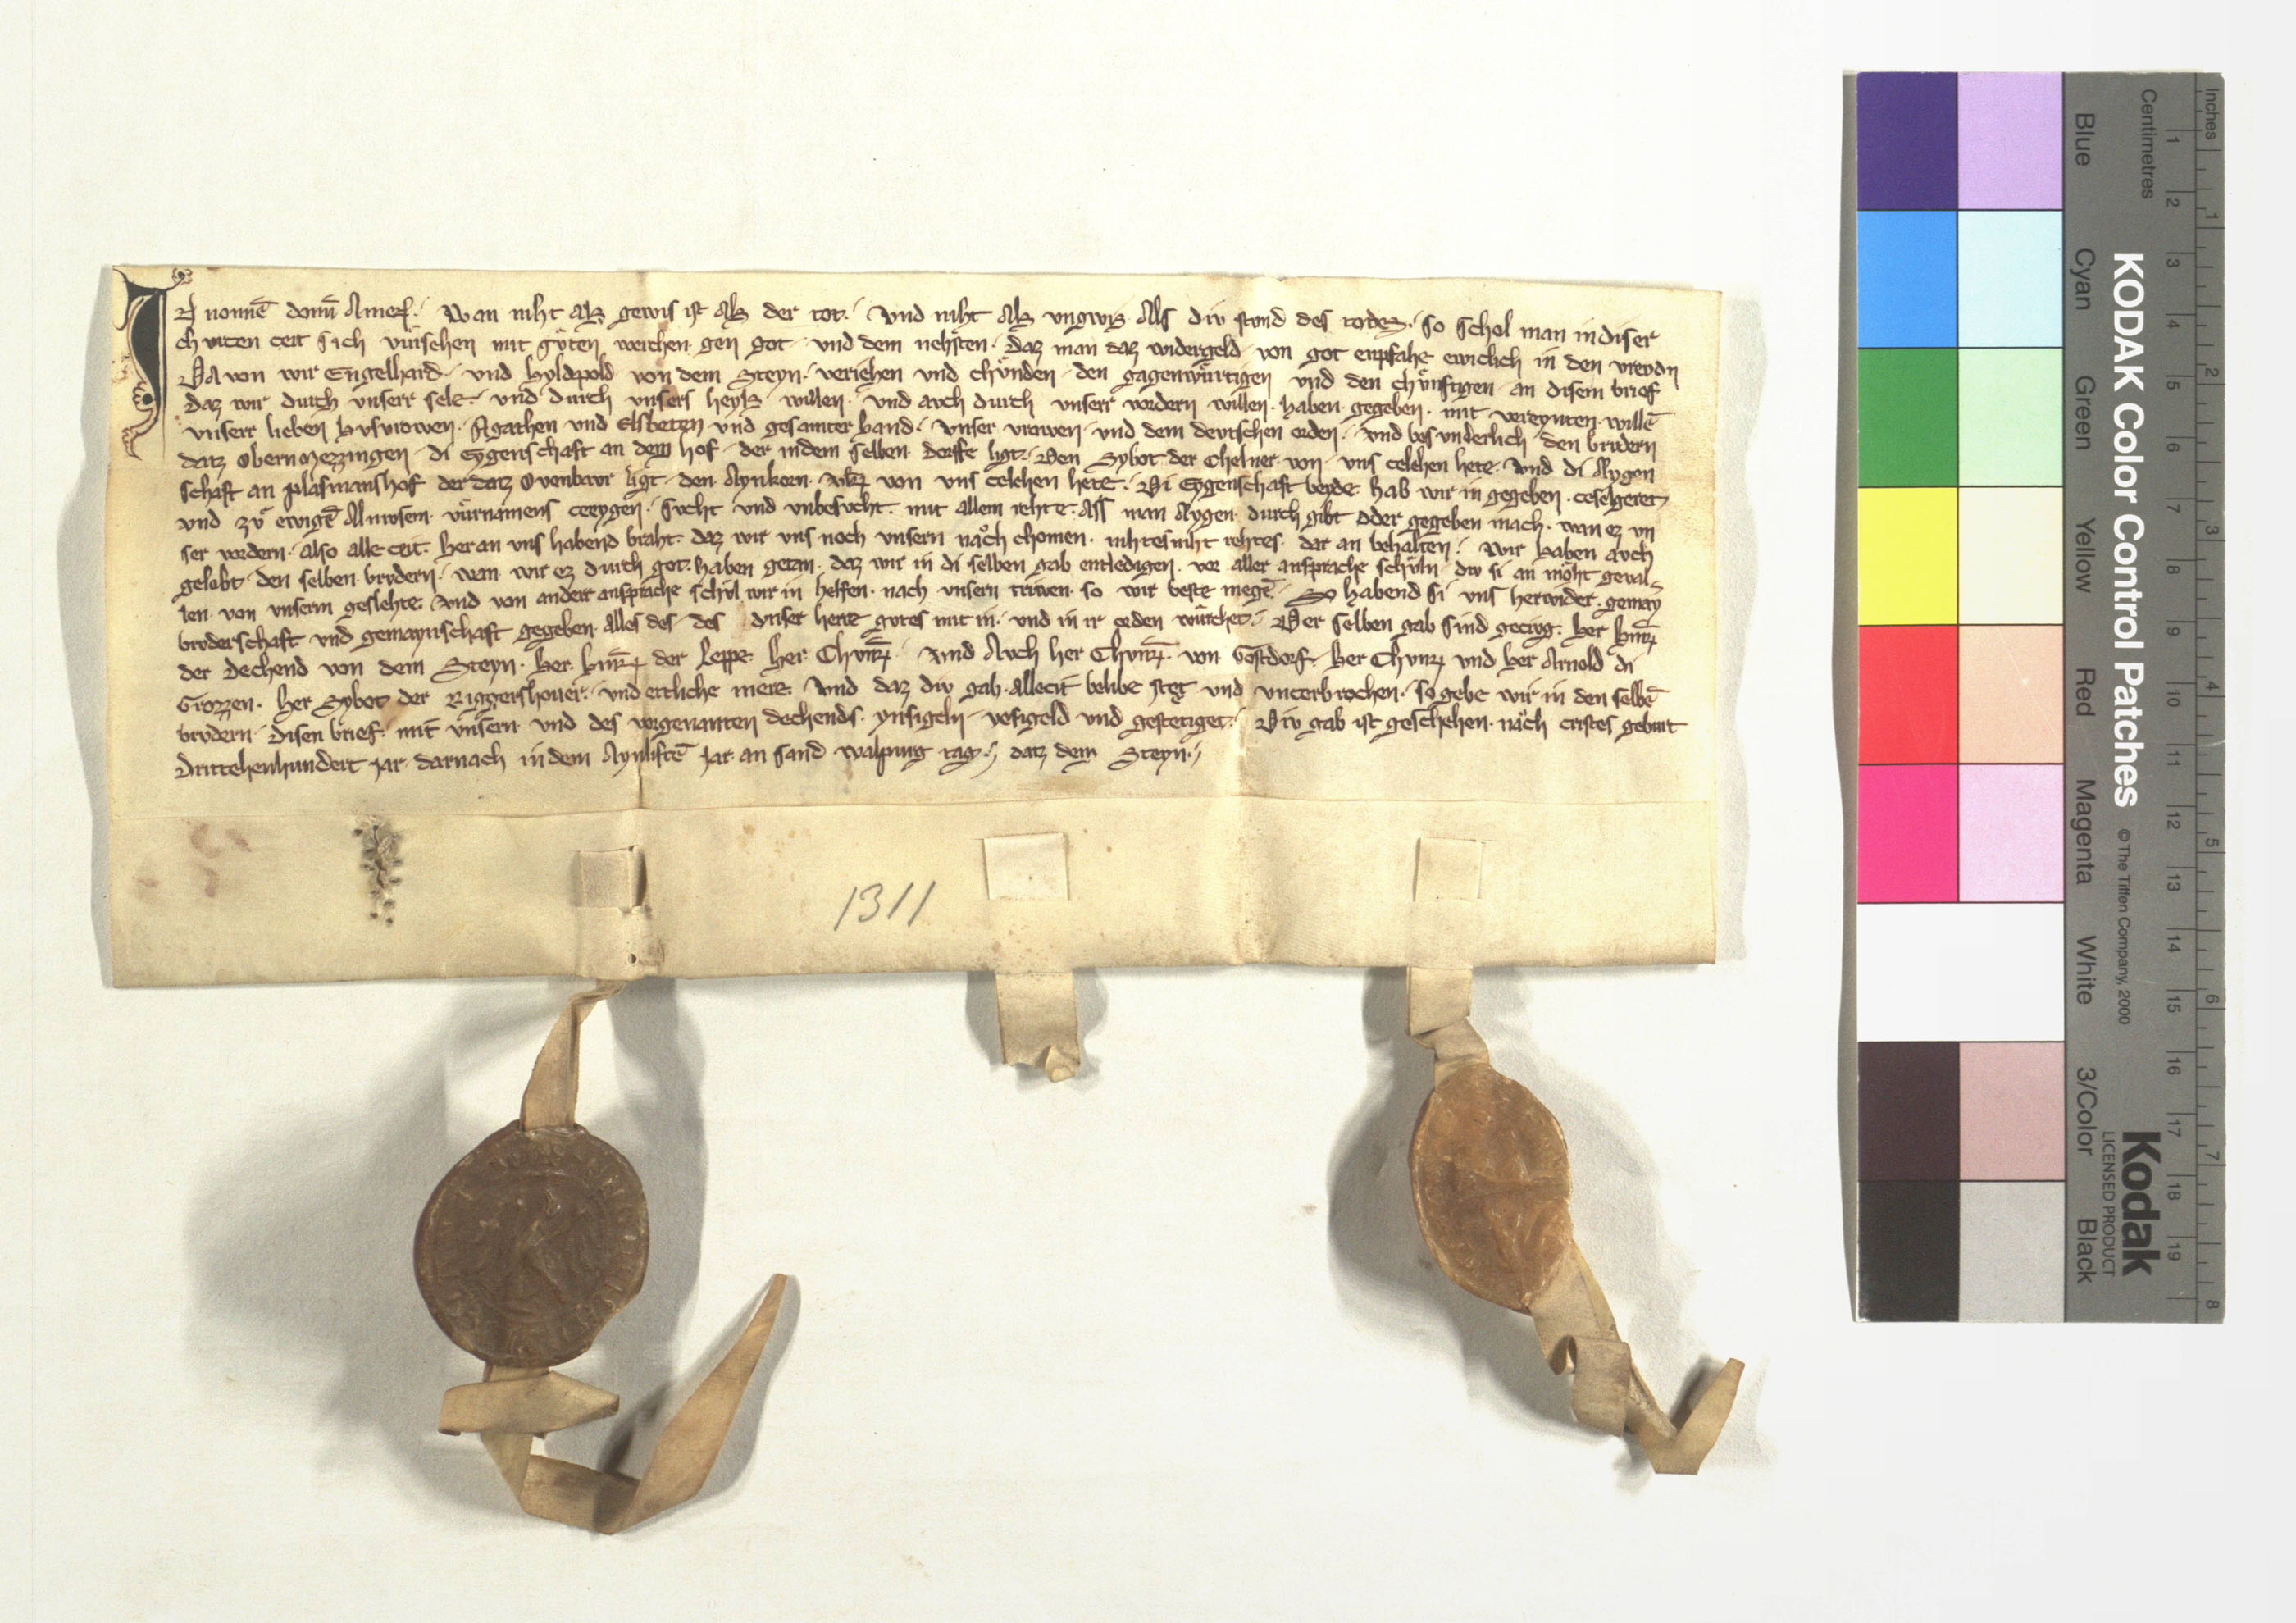 IN nomīe domī Amen. Wan niht Alz gewis ist Alz der tot. Und niht Alz ungwis Alls div stund des todez. so schol man in diser
churten ceit sich vürsehen mit gůten werchen gen got und dem nehsten. Daz man daz widergeld von got enpfahe ewiclich in den vrevdn
DA von wir Engelhard und Hyldpold von dem Steyn veriehen und chünden den gagenwürtigen und den chünftigen an disem brief
daz wir durch unserr sele und durch unsers heyls willen und auch durch unserr vordern willen haben gegeben mit vereynten willē
unserr lieben husvrowen Agathen und Elsbeten und gesamter hand. Unser vrawen und dem devtschen orden. Und besunderlich den brudern
datz Obernmezzingen di Eygenschaft an dem hof der in dem selben dorffe ligt. Den Sybot der Chelner von uns celehen hete. Und di Aygen
schaft an Plasmanshof der datz Ovenbavr ligt den Aynkorn von uns celehen hete. Di Eygenschaft beyde hab wir in gegeben ceselgeret
und zů ewigē Almusem vürnamens ceeygen sucht und unbesucht mit allem rehte Alss man Aygen durch gibt oder gegeben mach. wan ez un
ser vordern also alle ceit her an uns habend braht. daz wir uns noch unsern nåch chomen nihtesniht rehtes dar an behalten. Wir haben avch
gelobt den selben brudern wan wir ez durch got haben getan daz wir in di selben gab entledigen vor aller ansprache schüln div si an möht geval
len von unserm geslehte und von anderr ansprache schül wir in helfen nach unsern triwen so wir beste megē. So habend si uns herwider gemay
bruderschaft und gemaynschaft gegeben alles des des unser herre gutes mit in und in ir orden würchet. Der selben gab sind geciug. her
der Dechend von dem Steyn. Her der Leppe. Her Chunr. Und Auch her Chunr von Gostdorf. Her Chunr und her Arnold di
Grozzen. Her Sybot der Riggershover und ettliche mere. Und daz div gab alleceit belibe stet und unterbrochen. so gebe wir in den selbē
brudern disen brief mit unsern und des vorgenanten dechends ynsigeln vesigeld und gestetiget. Div gab ist geschehen nåch cristes geburt
Drittehenhundert jar darnach in dem Aynliftē jar an sand Walpurg tag datz dem Steyn.
1311
KODAK Color Control Patches © The Tiffen Company, 2000
Kodak
LICENSED PRODUCT
Inches 1 2 3 4 5 6 7 8
Centimetres 1 2 3 4 5 6 7 8 9 10 11 12 13 14 15 16 17 18 19
Blue Cyan Green Yellow Red Magenta White 3/Color Black